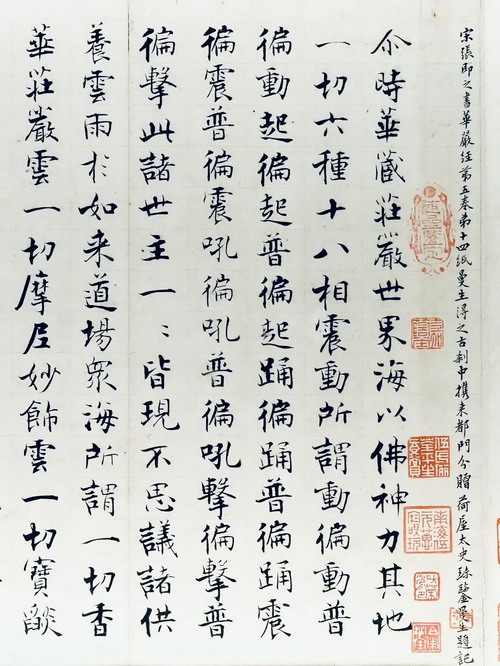 宋張即之書華嚴經第五卷第十四紙曼生得之古刹中攜来都門分贈荷屋太史珎鑒曼生題記
尒時華藏莊嚴世界海以佛神力其地
一切六種十八相震動所謂動徧動普
徧動起徧起普徧起踊徧踊普徧踊震
徧震普徧震吼徧吼普徧吼擊徧擊普
徧擊此諸世主一〻皆現不思議諸供
養雲雨於如来道場眾海所謂一切香
華莊嚴雲一切摩尼妙飾雲一切寶𦦨